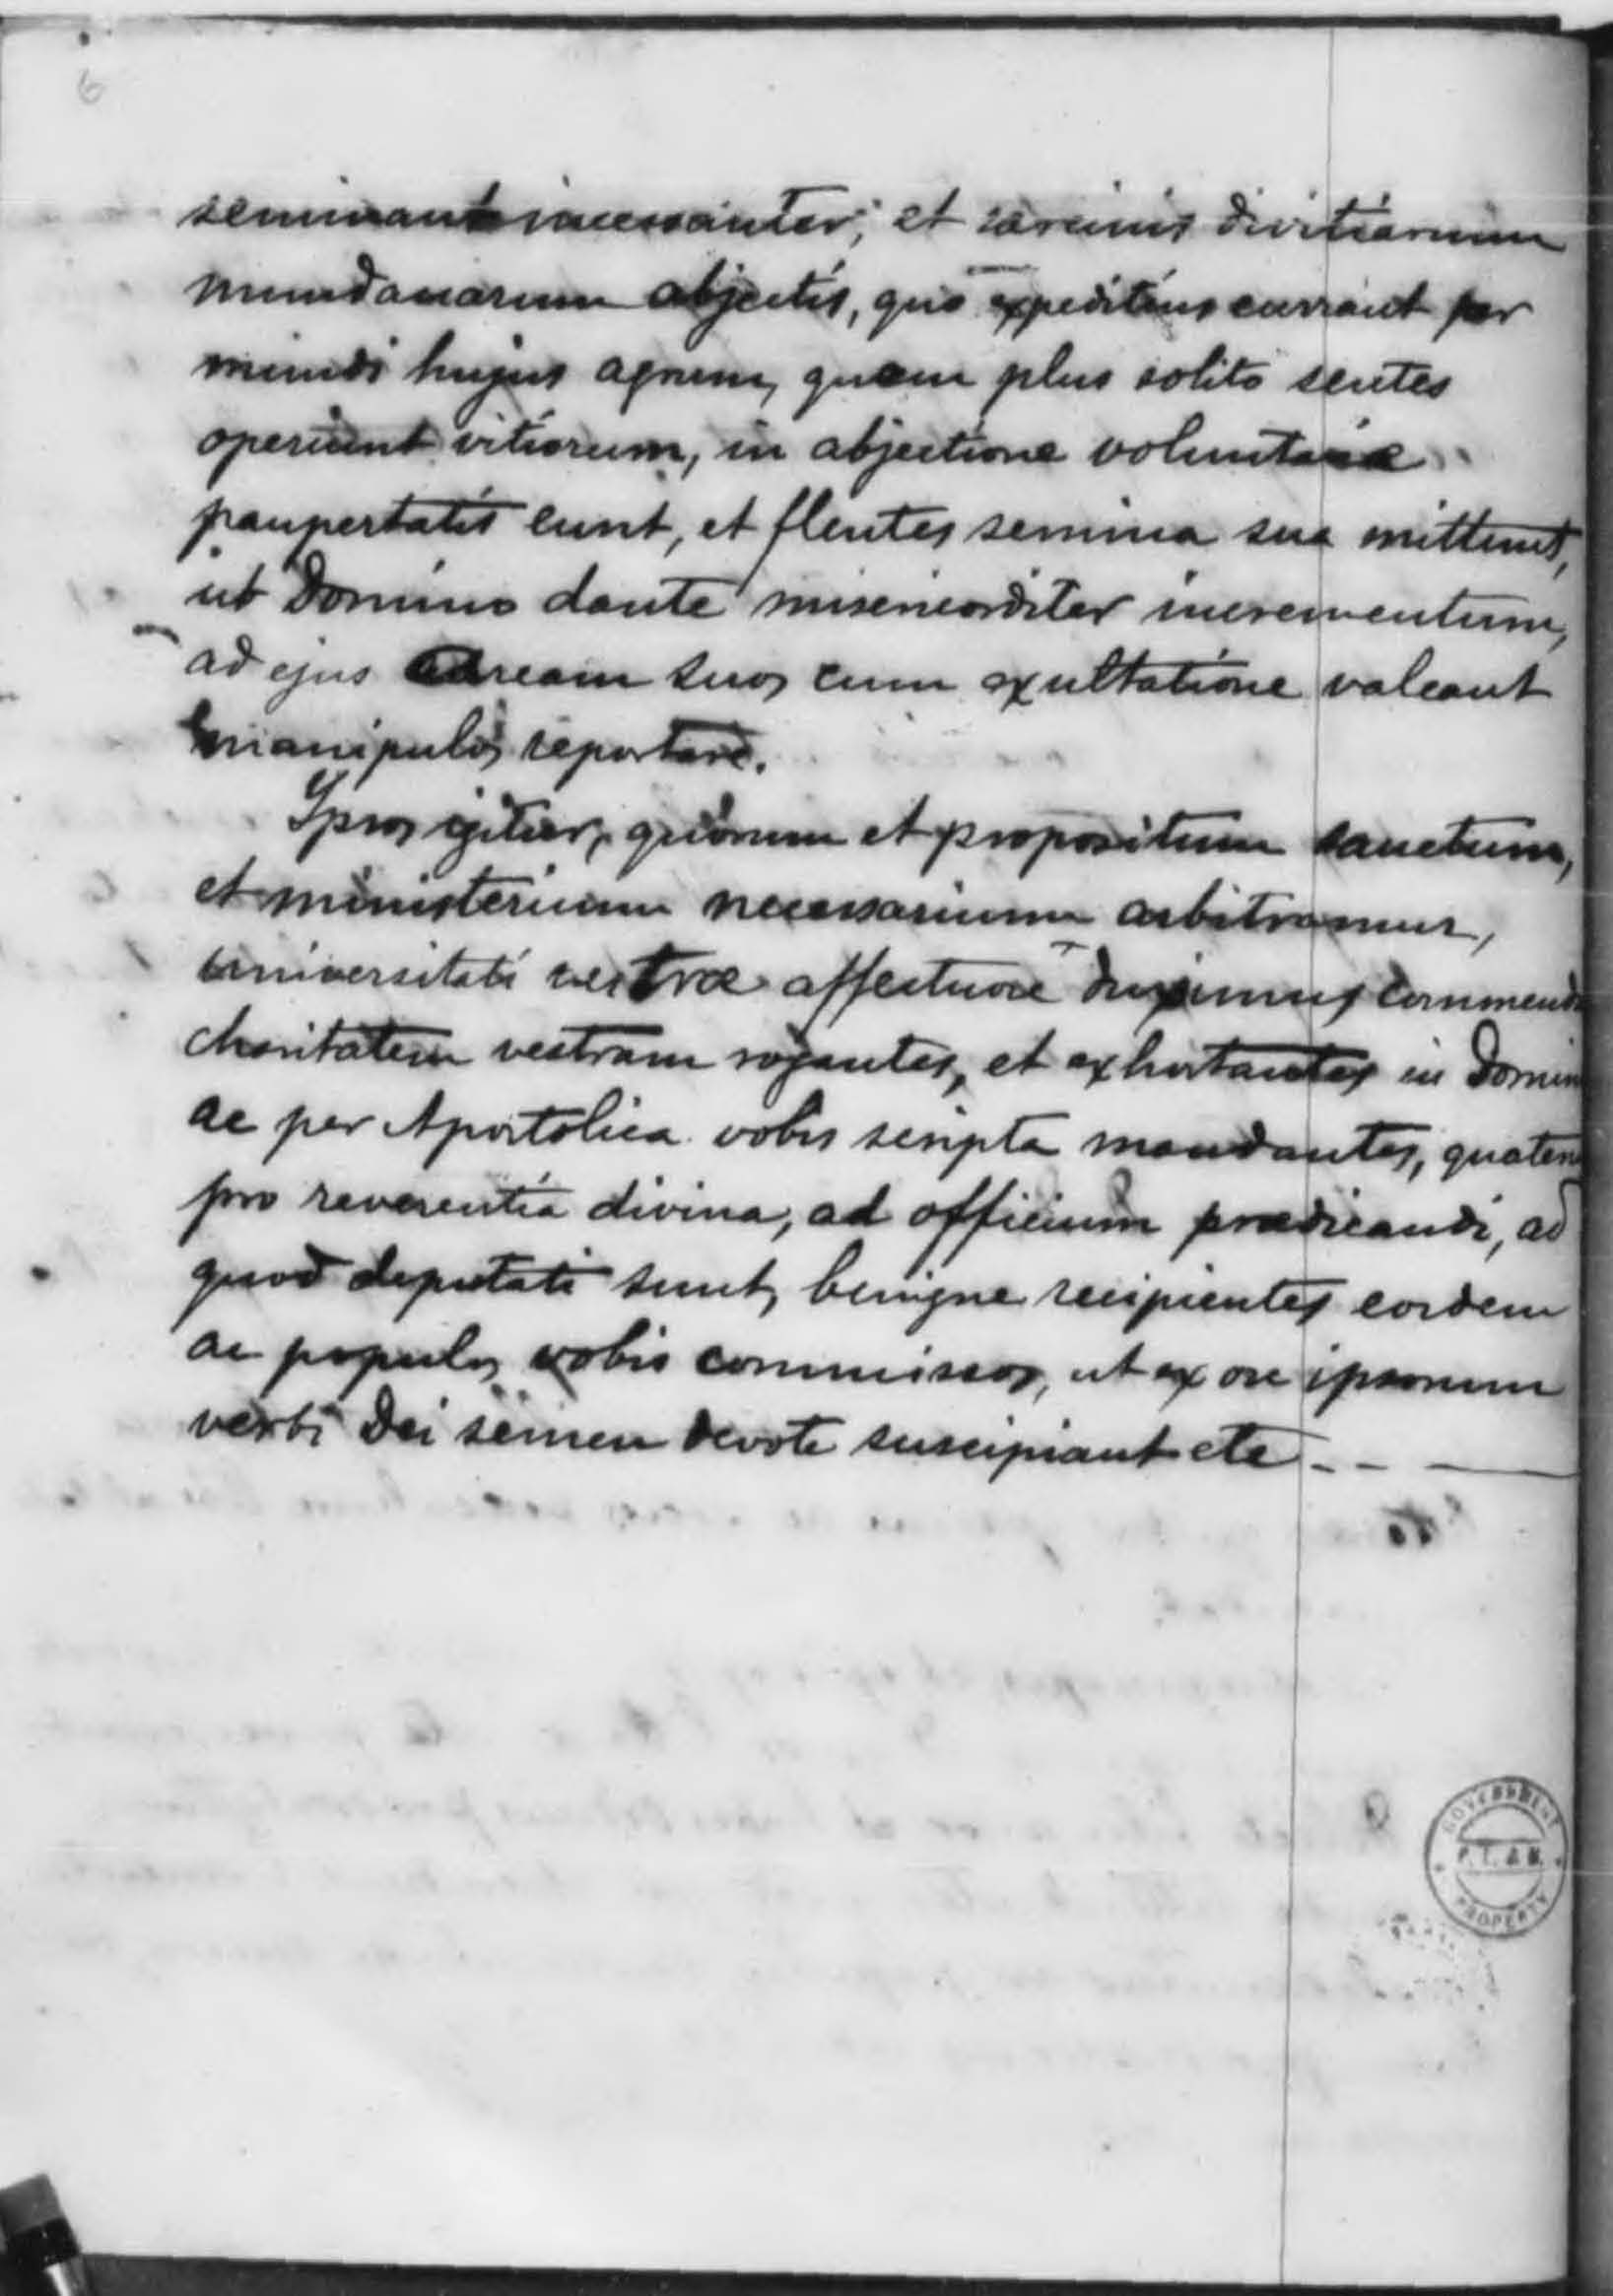 6
seminant incessanter; et sarcinis divitiarum
mundanarum abjectis, quo expeditius currant per
mundi hujus agrum, quem plus solito sentes
operiunt vitiorum, in abjectione voluntariae
paupertatis eunt, et flentes semina sua mittunt,
ut Domino dante misericorditer incrementum,
ad ejus aream suos cum exultatione valeant
manipulos reportare.
Ipsos igitur, quorum et propositum sanctum,
et ministerium necessarium arbitramur,
universitati vestrae affectuose duximus commend
charitatem vestram rogantes, et exhortantes in Domin
ac per Apostolica vobis scripta mandantes, quaten
pro reverentia divina, ad officium praedicandi, ad
quod deputati sunt, benigne recipientes eosdem
ac populos vobis commissos, ut ex ore ipsorum
verbi Dei semen devote suscipiant etc - - —
GOVERNMENT
P.T. & M.
PROPERTY